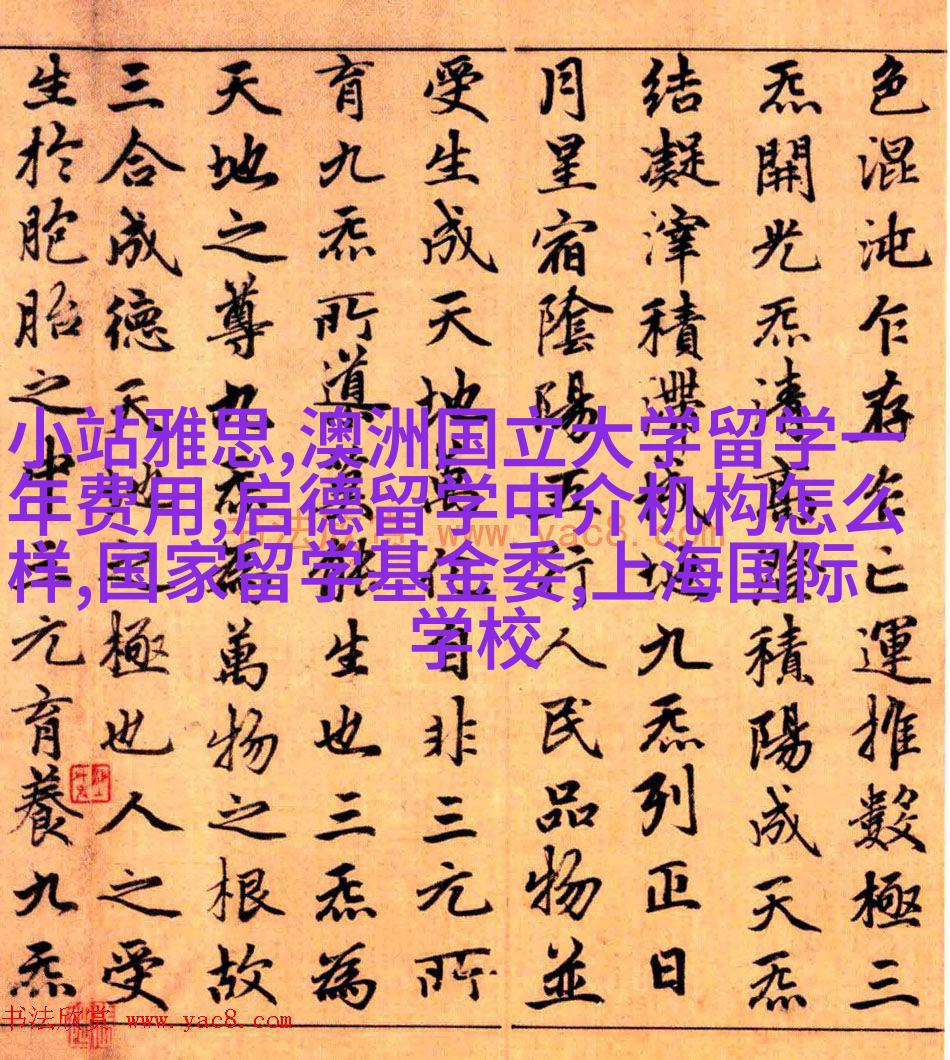 色混沌乍存乍亡運推數極三
炁開光炁清高積陽成天炁
結凝滓積滯成地九炁列正日
月星宿陰陽五行人民品物並
受生成天地萬化自非三元所
育九炁所導莫能生也三炁為
天地之尊九炁為萬物之根故
三合成德天地之極也人之受
生於胞胎之中三元育養九炁
小站雅思,澳洲国立大学留学一
年费用,启德留学中介机构怎么
样,国家留学基金委,上海国际
学校
书法欣赏 www.yac8.com
书法欣赏 www.yac8.com